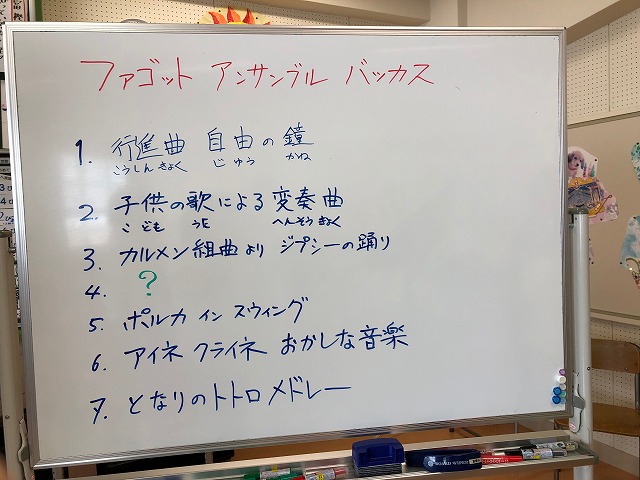 ファゴット アンサンブル バッカス
1. 行進曲 自由の鐘
こうしん きょく じゆう かね
2. 子供の歌による変奏曲
こ ども うた へんそうきょく
3. カルメン組曲より ジプシーの踊り
4. ?
5. ポルカ イン スウィング
6. アイネ クライネ おかしな音楽
7. となりのトトロメドレー